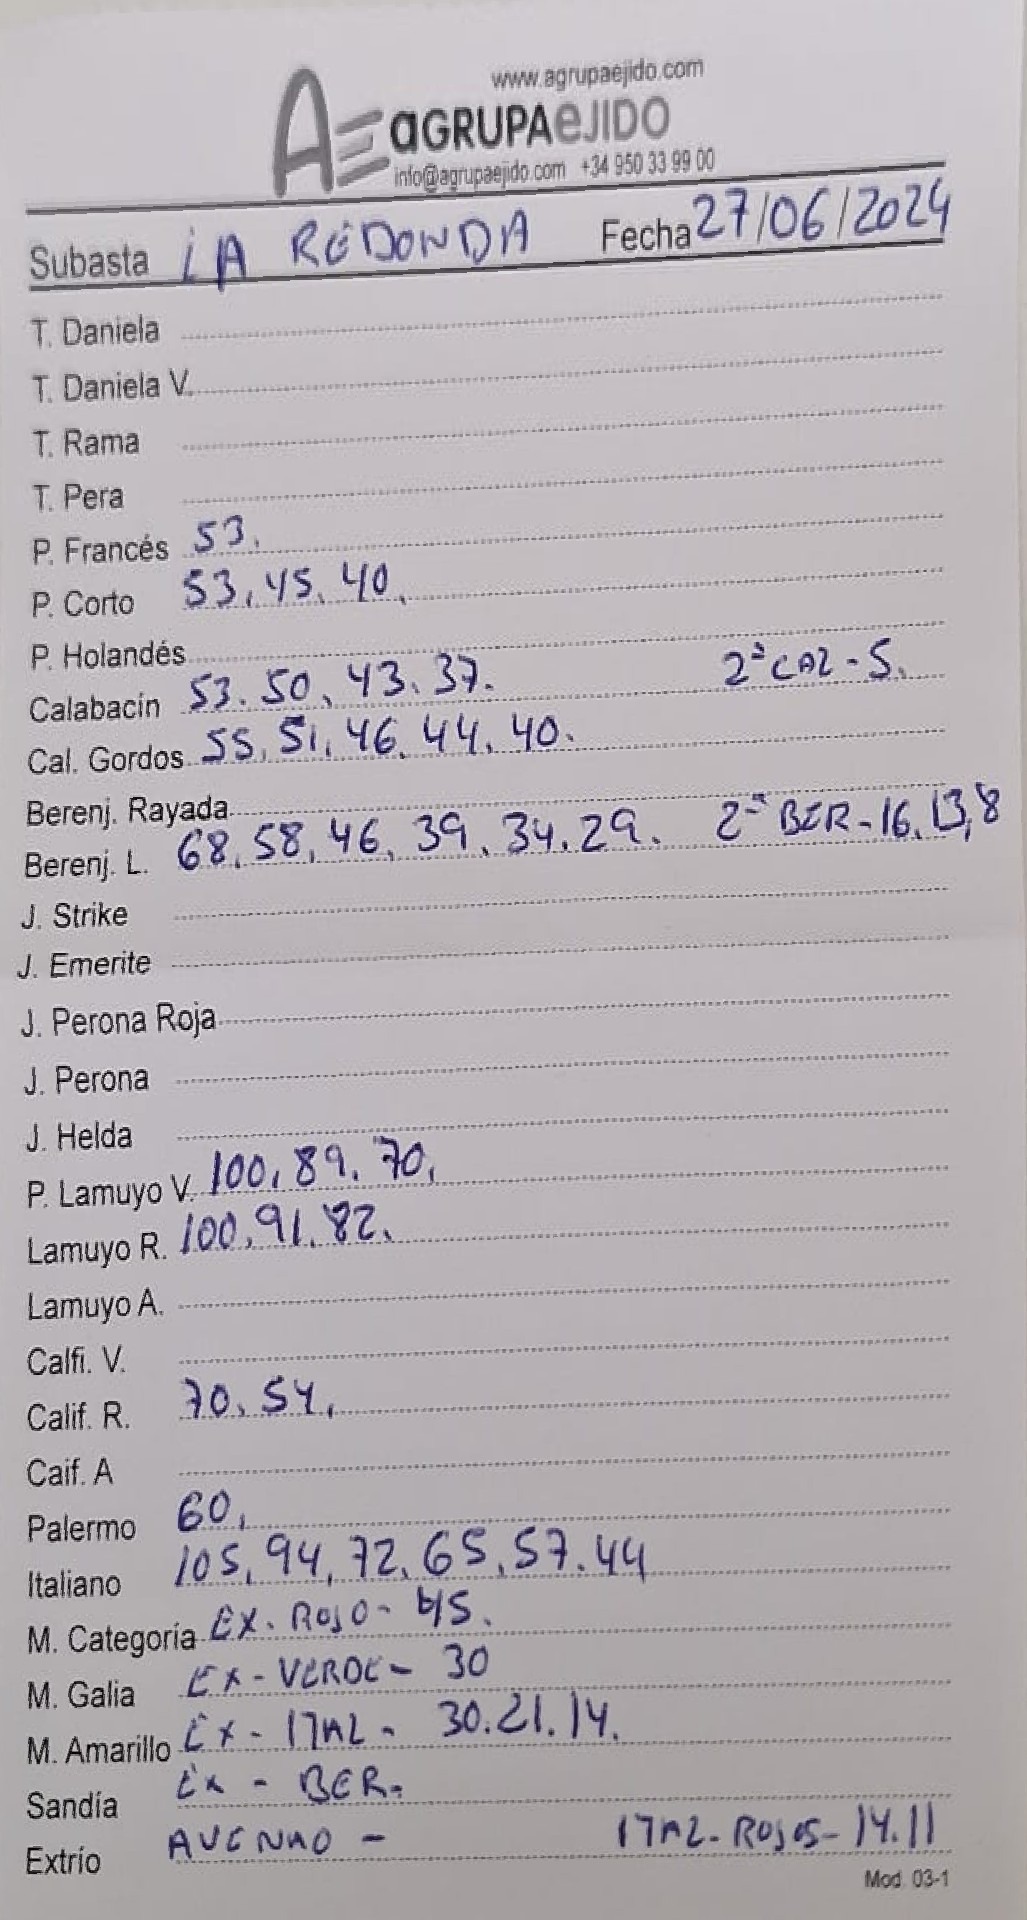 www.agrupaejido.com
AE aGRUPAeJIDO
info@agrupaejido.com +34 950 33 99 00
Subasta LA REDONDA Fecha 27/06/2024
T. Daniela
T. Daniela V.
T. Rama
T. Pera
P. Francés 53.
P. Corto 53, 45, 40,
P. Holandés
Calabacín 53. 50, 43. 37. 2ª CAL - 5.
Cal. Gordos 55, 51, 46, 44, 40.
Berenj. Rayada
Berenj. L. 68, 58, 46, 39, 34, 29. 2ª BER - 16, 13, 8
J. Strike
J. Emerite
J. Perona Roja
J. Perona
J. Helda
P. Lamuyo V. 100, 89. 70,
Lamuyo R. 100, 91, 82.
Lamuyo A.
Calfi. V.
Calif. R. 70, 54,
Caif. A
Palermo 60,
Italiano 105, 94, 72, 65, 57. 44
M. Categoría EX. ROJO - 45.
M. Galia EX - VERDE - 30
M. Amarillo EX - ITAL - 30. 21. 14.
Sandía EX - BER.
Extrío ITAL - ROJOS - 14. 11
Mod. 03-1